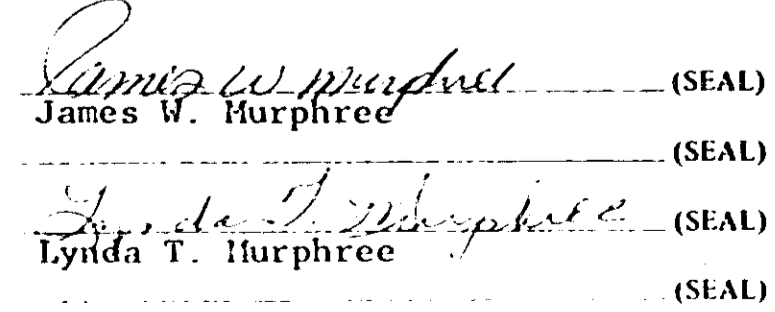 James W Murphree (SEAL)
James W. Murphree
(SEAL)
Lynda T. Murphree (SEAL)
Lynda T. Murphree
(SEAL)